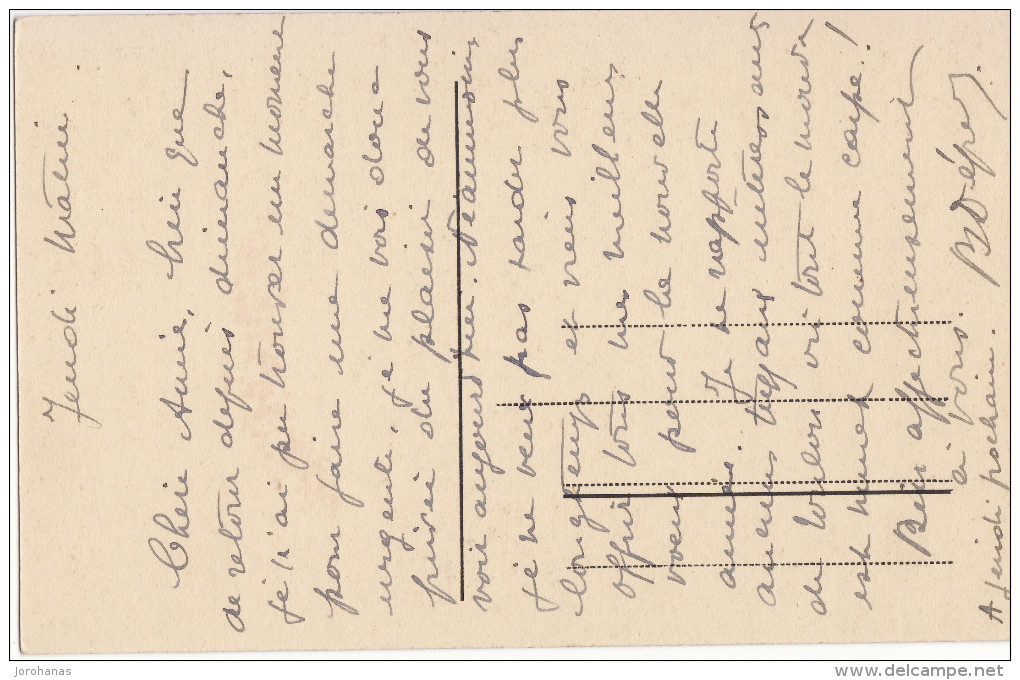 Jeudi Matin
Chère Amie, bien que
de retour depuis dimanche,
je n'ai pu trouver un moment
pour faire une démarche
urgente, je me vois donc
privée du plaisir de vous
voir aujourd'hui. Néanmoins,
je ne veux pas tarder plus
longtemps et viens vous
offrir tous mes meilleurs
voeux pour la nouvelle
année. Je ne rapporte
aucuns tuyaux intéressants
de Toulon où tout le monde
est muet comme carpe!
Bien affectueusement
à vous.
A Jeudi prochain.
jorohanas
www.delcampe.net